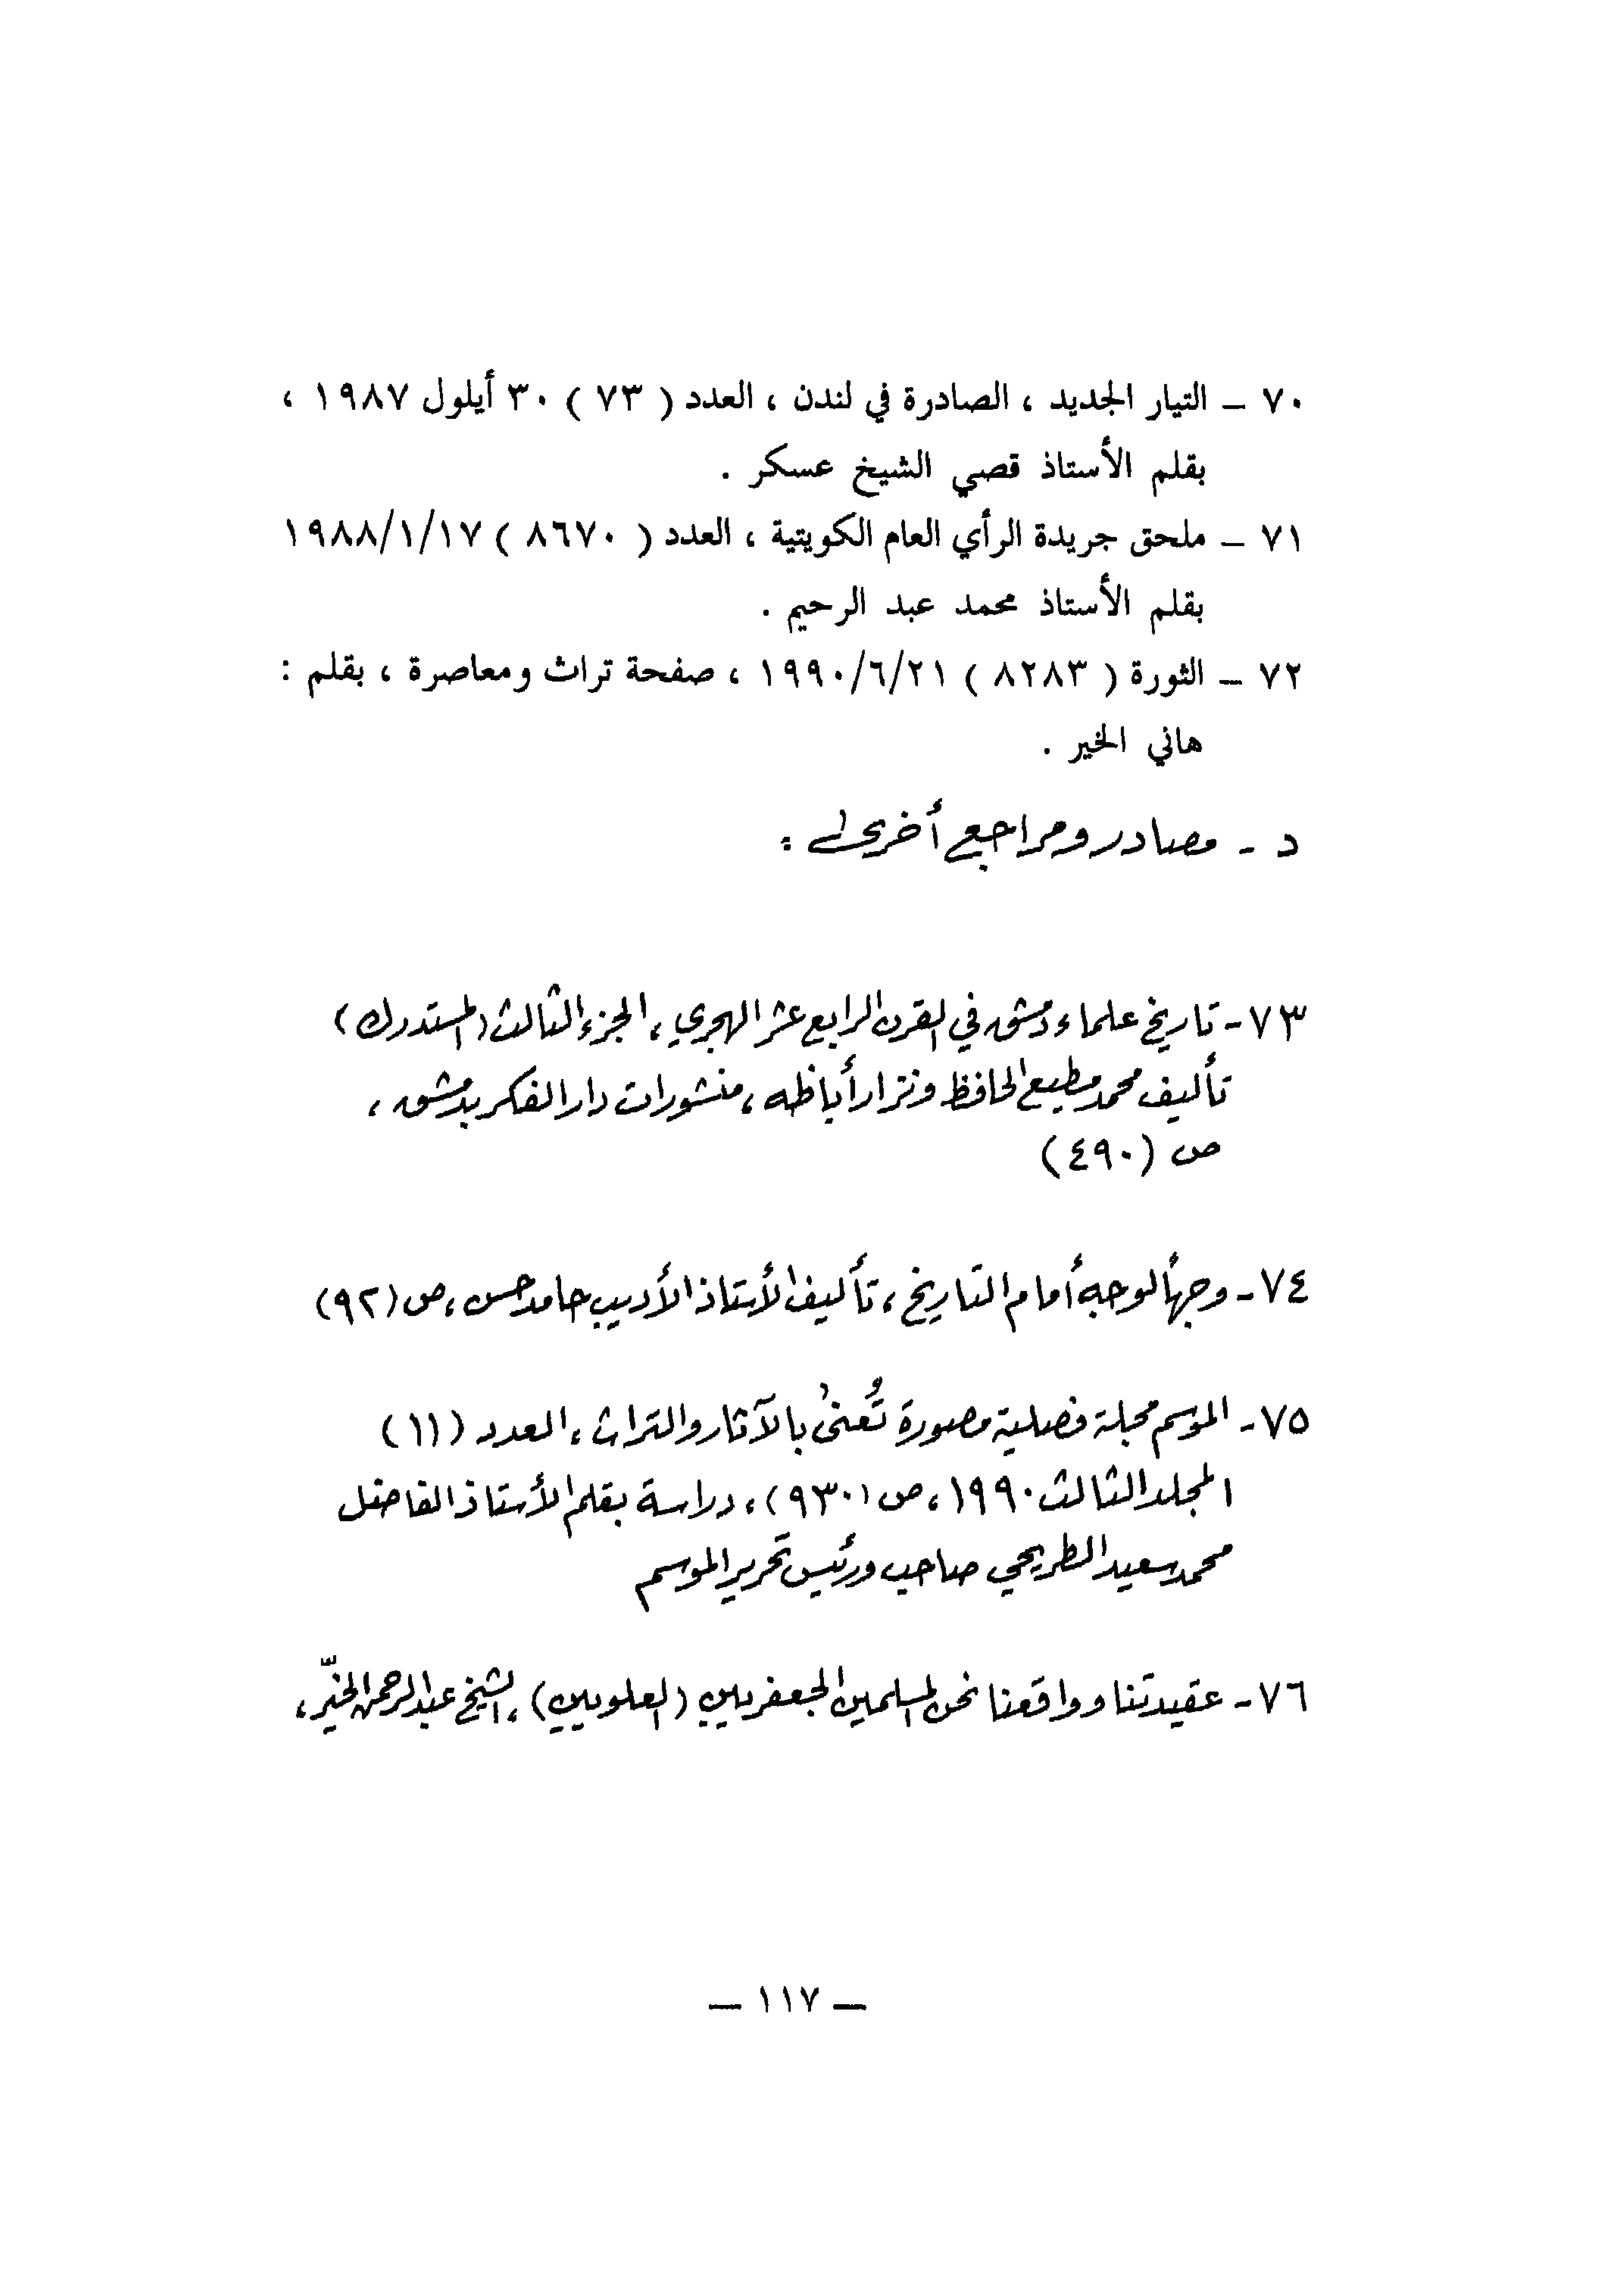 ٧٠ ــ التيار الجديد ، الصادرة في لندن ، العدد ( ٧٣ ) ٣٠ أيلول ١٩٨٧ ،
بقلم الأستاذ قصي الشيخ عسكر .
٧١ ــ ملحق جريدة الرأي العام الكويتية ، العدد ( ٨٦٧٠ ) ١٩٨٨/١/١٧
بقلم الأستاذ محمد عبد الرحيم .
٧٢ ــ الثورة ( ٨٢٨٣ ) ١٩٩٠/٦/٢١ ، صفحة تراث ومعاصرة ، بقلم :
هاني الخير .
د - مصادر ومراجع أخرى :
٧٣- تاريخ علماء دمشق في القرن الرابع عشر الهجري ، الجزء الثالث (المستدرك)
تأليف محمد مطيع الحافظ ونزار أباظه ، منشورات دار الفكر بدمشق ،
ص (٤٩٠)
٧٤- وجهاً لوجه أمام التاريخ ، تأليف الأستاذ الأديب حامد حسن ، ص (٩٢)
٧٥- الموسم مجلة فصلية مصورة تُعنىٰ بالآثار والتراث ، العدد (١١)
المجلد الثالث ١٩٩٠ ، ص (٩٣٠) ، دراسة بقلم الأستاذ الفاضل
محمد سعيد الطريحي صاحب ورئيس تحرير الموسم
٧٦- عقيدتنا وواقعنا نحن المسلمين الجعفريين (العلويين) ، الشيخ عبدالرحمن الخيّر ،
ــ ١١٧ ــ